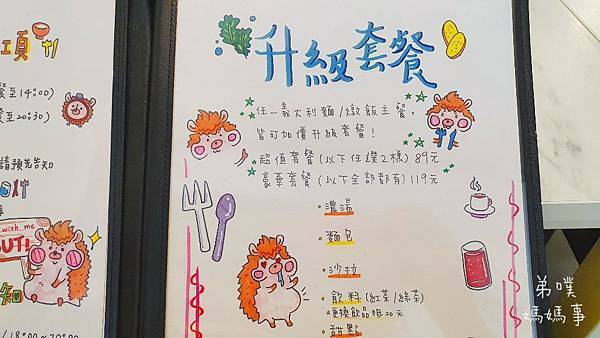 項
餐至14:00)
餐至20:30)
請預先告知
with_me
OUT!
知
18:00~20:00
升級套餐
任一義大利麵/燉飯主餐,
皆可加價升級套餐!
超值套餐(以下任選2樣) 89元
豪華套餐(以下全部都有) 119元
·濃湯
·麵包
·沙拉
·飲料(紅茶/綠茶)
更換飲品現20元
·甜點
弟噗
媽媽事